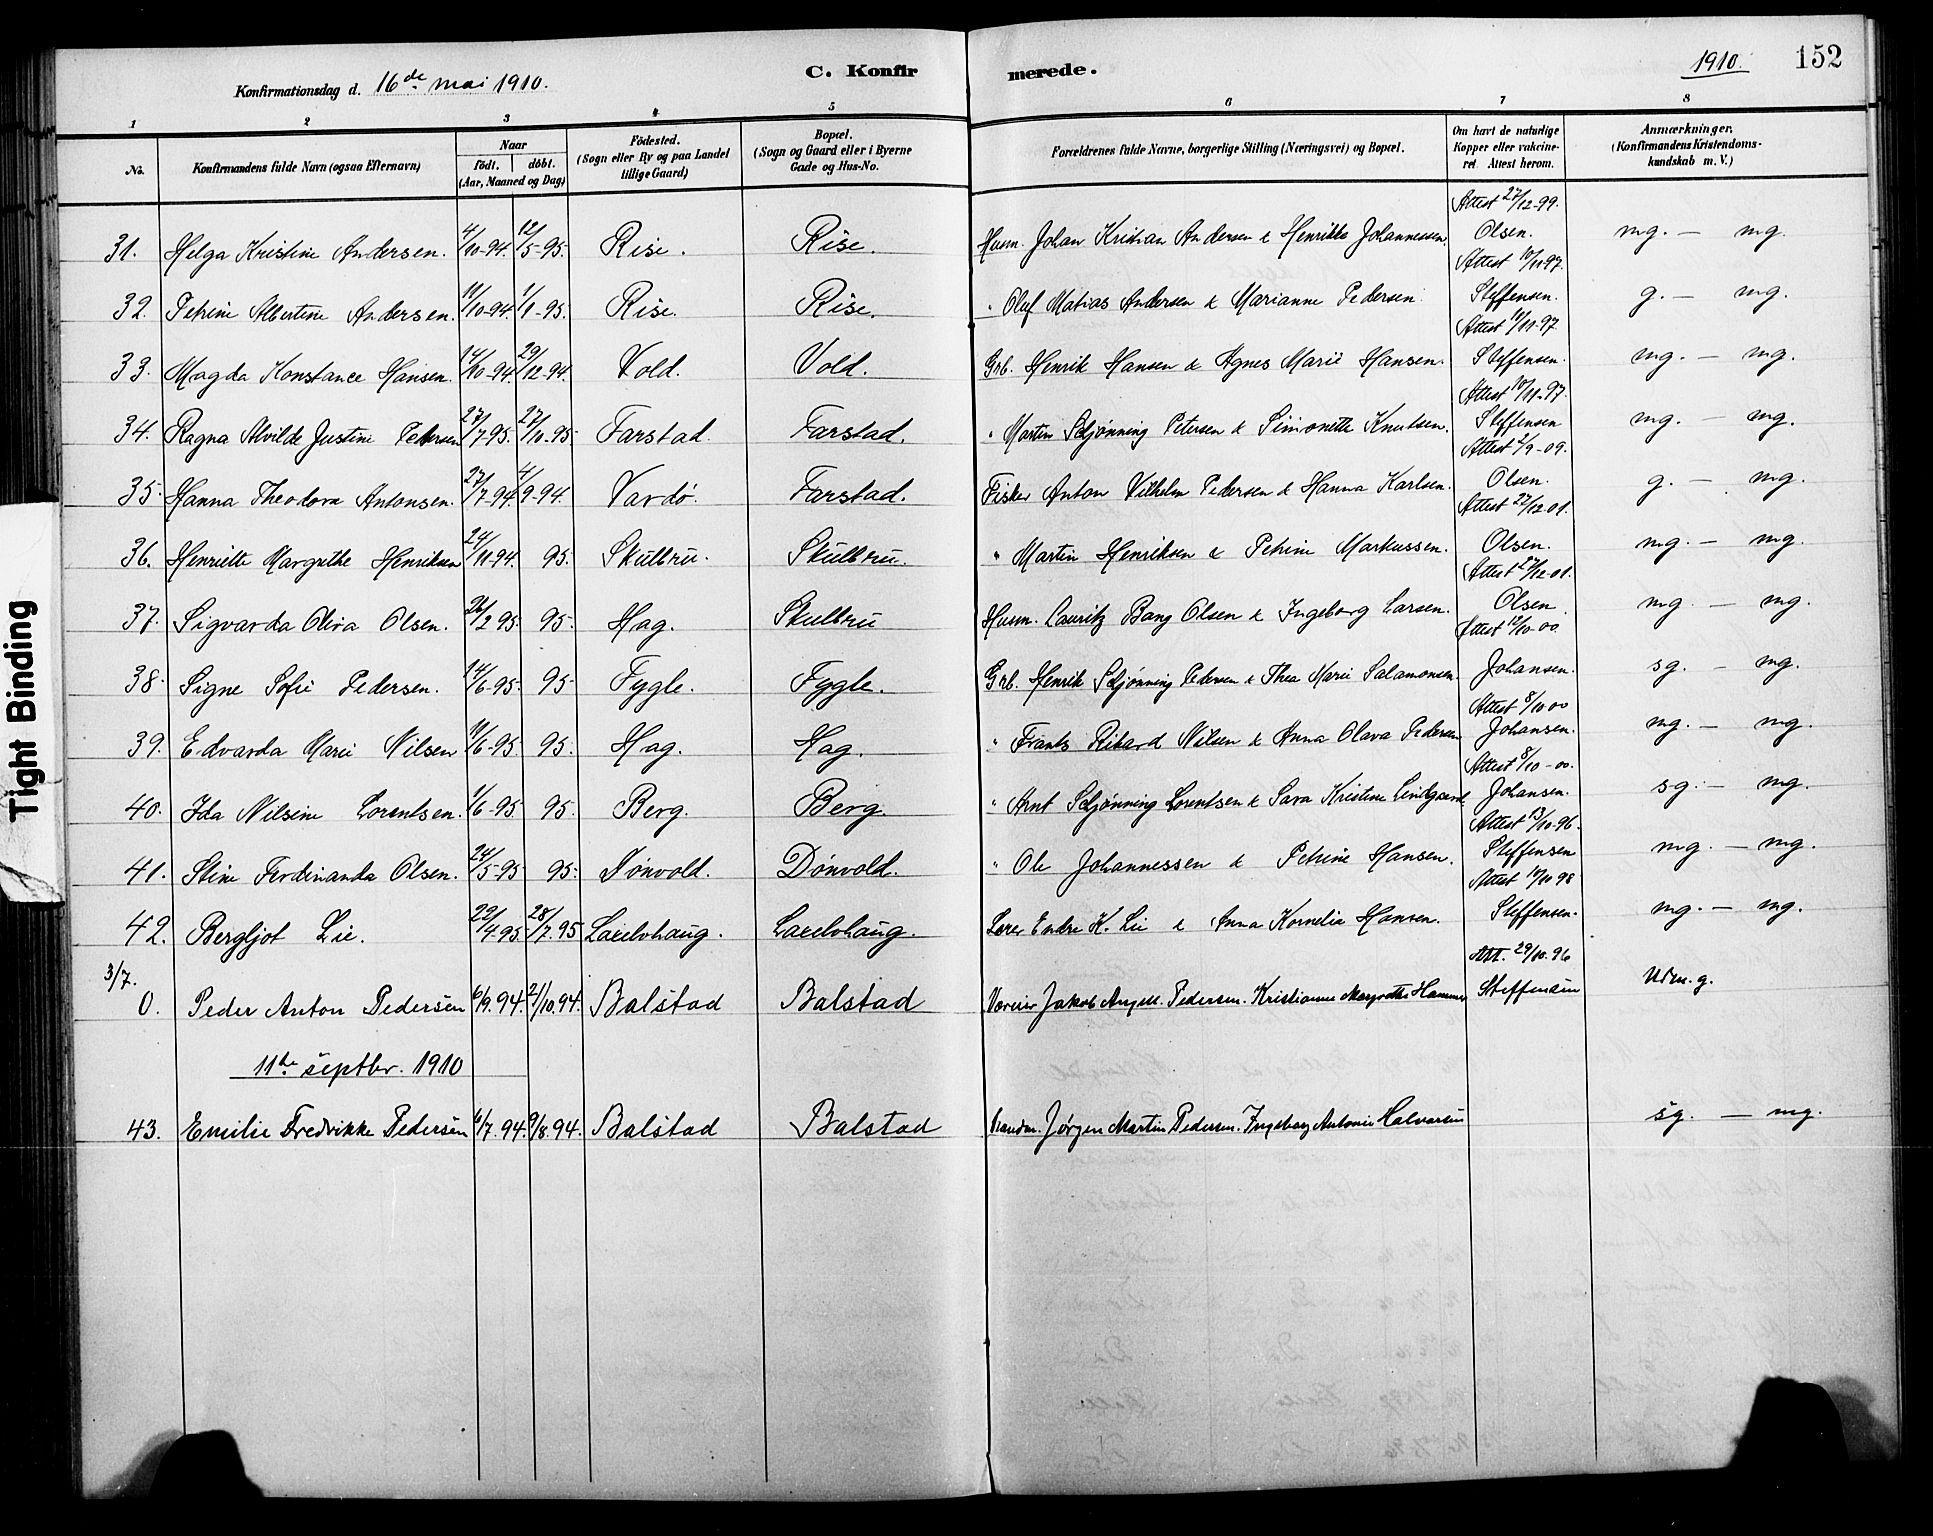 Konfirmationsdag d. 16de mai 1910.
C. Konfirmerede.
1910.
152
1 2 3 4 5 6 7 8
No. Konfirmandens fulde Navn (ogsaa Efternavn) Naar födt. döbt. (Aar, Maaned og Dag) Födested. (Sogn eller By og paa Landet tillige Gaard) Bopæl. (Sogn og Gaard eller i Byerne Gade og Hus-No. Forældrenes fulde Navne, borgerlige Stilling (Næringsvei) og Bopæl. Om havt de naturlige Kopper eller vakcineret. Attest herom. Anmærkninger. (Konfirmandens Kristendomskundskab m. V.)
31. Helga Kristine Andersen. 4/10-94. 12/5-95. Rise. Rise. Husm. Johan Kristian Andersen & Henrikke Johannessen. Attest 27/12-99. Olsen. mg. — mg.
32. Petrine Albertine Andersen. 11/10-94. 1/1-95. Rise. Rise. " Oluf Matias Andersen & Marianne Pedersen. Attest 10/11-97. Steffensen. g. — mg.
33. Magda Konstance Hansen. 14/10-94. 29/12-94. Vold. Vold. Grb. Henrik Hansen & Agnes Marie Hansen. Attest 10/11-97 Steffensen. mg. — mg.
34. Ragna Alvilde Justine Petersen 27/7-95. 27/10-95. Farstad. Farstad. " Martin Schjønning Petersen & Simonette Knutsen. Attest 10/11-97. Steffensen mg. — mg.
35. Hanna Theodora Antonsen. 27/7-94. 4/9-94. Vardø. Farstad. Fisker Anton Vilhelm Pedersen & Hanna Karlsen. Attest 2/9-09. Olsen. g. — mg.
36. Henriette Margrethe Henriksen 24/11-94. 95. Skulbru. Skulbru. " Martin Henriksen & Petrine Markussen. Attest 27/12-01. Olsen. mg. — mg.
37. Sigvarda Oliva Olsen. 26/2 95. 95. Hag. Skulbru Husm. Lauritz Bang Olsen & Ingeborg Larsen. Attest 27/12-01. Olsen mg. — mg.
38. Signe Sofie Pedersen. 14/6-95. 95. Fygle. Fygle. Grb. Henrik Schjønning Pedersen & Thea Marie Salamonsen. Attest 12/10-00. Johansen. sg. — mg.
39. Edvarda Marie Nilsen 11/6-95. 95. Hag. Hag. " Frantz Rikard Nilsen & Anna Olava Pedersen Attest 8/10 00 Johansen. mg. — mg.
40. Ida Nilsine Lorentsen. 1/6-95. 95. Berg. Berg. " Arnt Schjønning Lorentsen & Sara Kristine Lindgaard Attest 8/10-00. Johansen. sg. — mg.
41. Stine Ferdinanda Olsen. 24/5-95 95. Dønvold. Dønvold. " Ole Johannessen & Petrine Hansen. Attest 13/10-96. Steffensen mg. — mg.
42. Bergljot Lie. 22/4-95. 28/7.95 Lærer Endre K. Lie & Anna Kornelia Hansen. Attest 10/10 98 Steffensen. mg. — mg.
3/7.
0. Peder Anton Pedersen 6/9.94. 21/10.94. Balstad Balstad Væreier Jakob Angell Pedersen. Kristianne Margrethe Hammer Att. 29/10.96 Steffensen Udm.g.
11te septbr. 1910
43. Emilie Fredrikke Pedersen 6/7.94. 9/8.94. Balstad Balstad Jørgen Martin Pedersen. Ingeborg Antonie Halvorsen sg. — mg.
Tight Binding